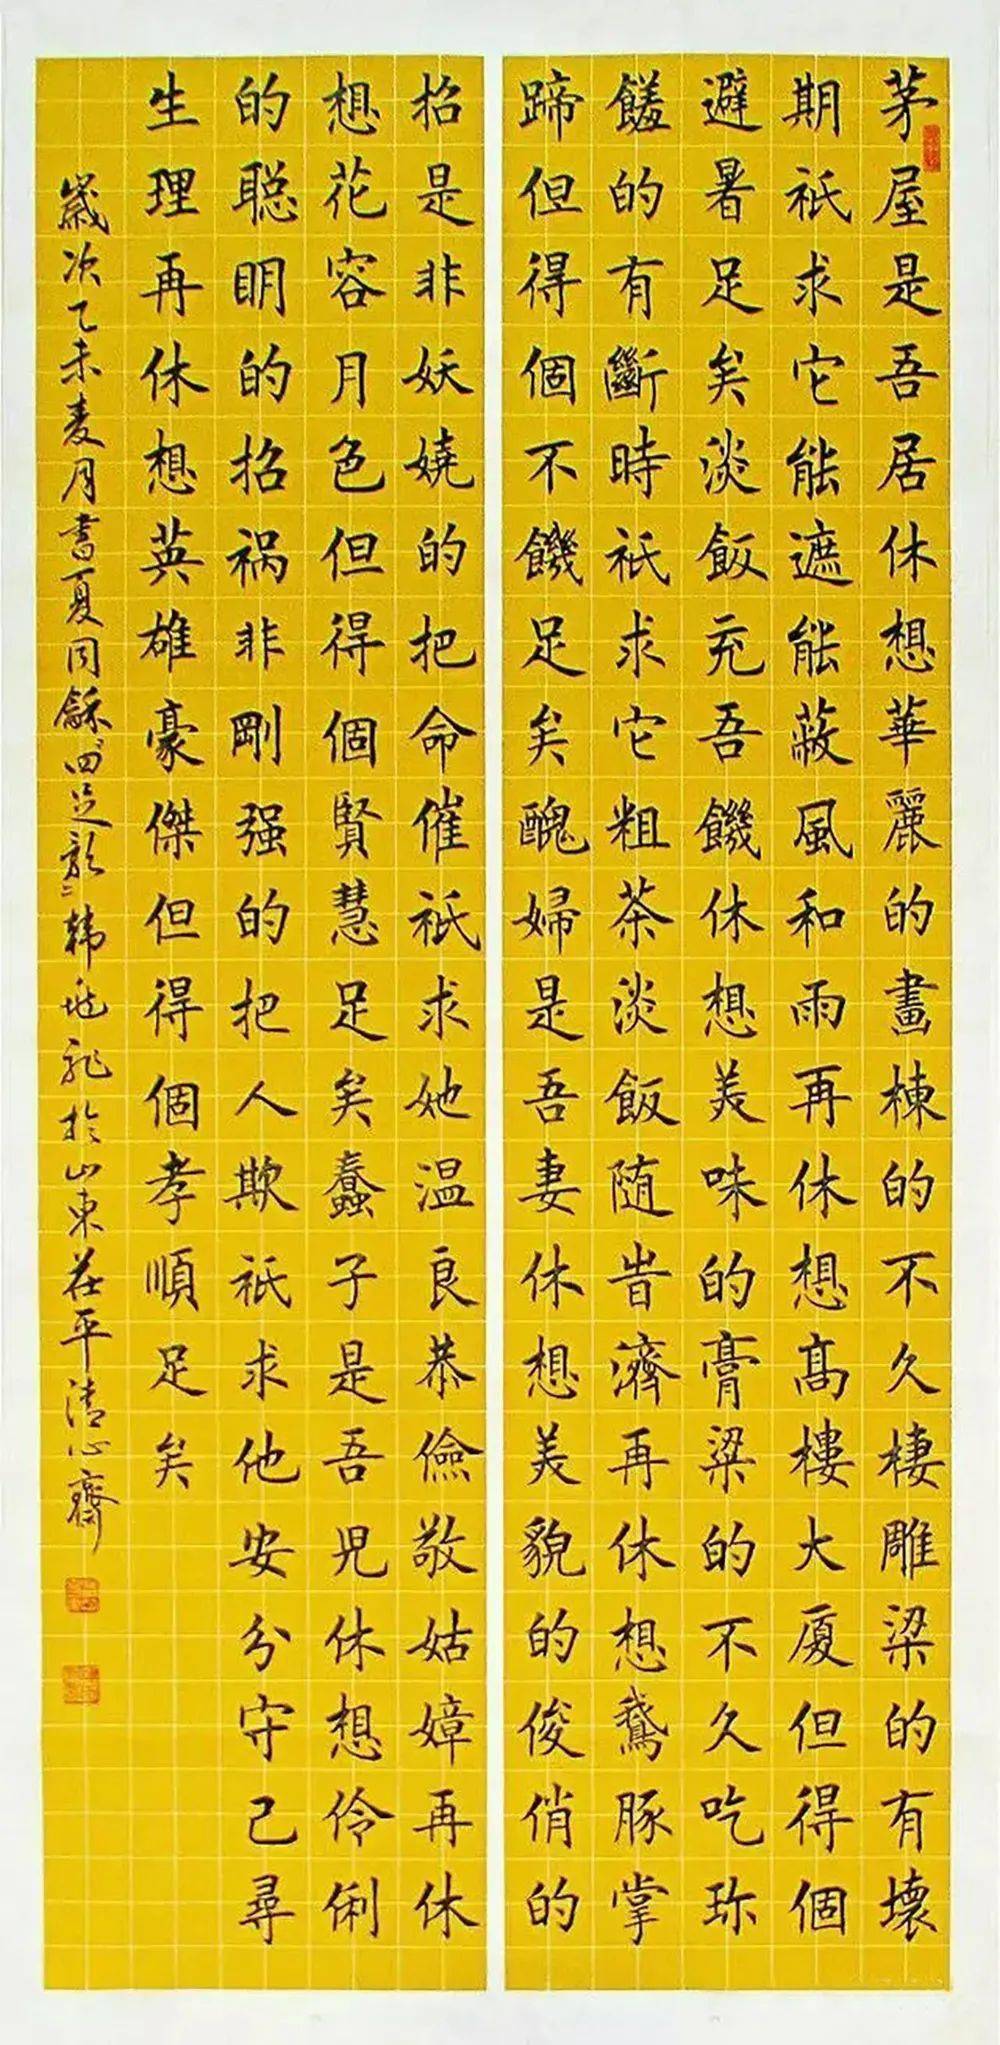 茅屋是吾居休想華麗的畫棟的不久棲雕梁的有壞
期祇求它能遮能蔽風和雨再休想高樓大廈但得個
避暑足矣淡飯充吾饑休想美味的膏粱的不久吃珎
饈的有斷時祇求它粗茶淡飯随旹濟再休想鵞豚掌
蹄但得個不饑足矣醜婦是吾妻休想美貌的俊俏的
招是非妖嬈的把命催祇求她温良恭儉敬姑嫜再休
想花容月色但得個賢慧足矣蠢子是吾児休想伶俐
的聪明的招祸非剛强的把人欺祇求他安分守己尋
生理再休想英雄豪傑但得個孝順足矣
歲次乙未麦月書夏同龢 韩 於山東茌平清心齋